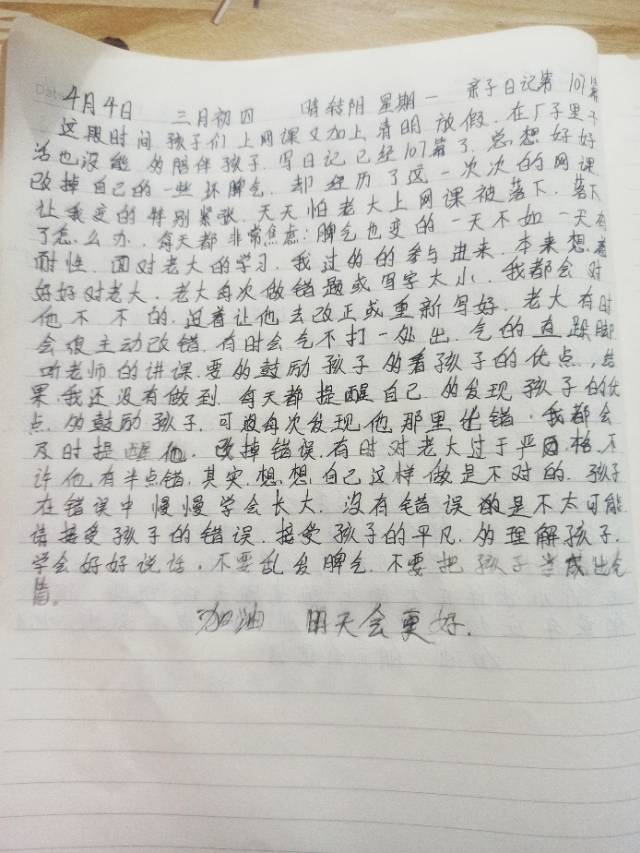 4月4日 三月初四 晴转阴 星期一 亲子日记第107篇
这段时间孩子们上网课又加上清明放假.在厂子里干
活也没能多陪伴孩子.写日记已经107篇了.总想好好
改掉自己的一些坏脾气.却经历了这一次次的网课
让我变的特别紧张.天天怕老大上网课被落下.落下
了怎么办.每天都非常焦虑:脾气也变的一天不如一天有
耐性.面对老大的学习.我过多的参与进来.本来想着
好好对老大.老大每次做错题或写字太小.我都会对
他不不的.逼着让他去改正或重新写好.老大有时
会很主动改错.有时会气不打一处出.气的直跺脚
听老师的讲课.要多鼓励孩子多看孩子的优点,结
果.我还没有做到.每天都提醒自己.多发现孩子的优
点.多鼓励孩子.可每次发现他那里出错.我都会
及时提醒他.改掉错误.有时对老大过于严格.不
许他有半点错.其实.想想自己这样做是不对的.孩子
在错误中慢慢学会长大.没有错误是不太可能
请接受孩子的错误.接受孩子的平凡.多理解孩子.
学会好好说话.不要乱发脾气.不要把孩子当成出气
筒。
加油 明天会更好.